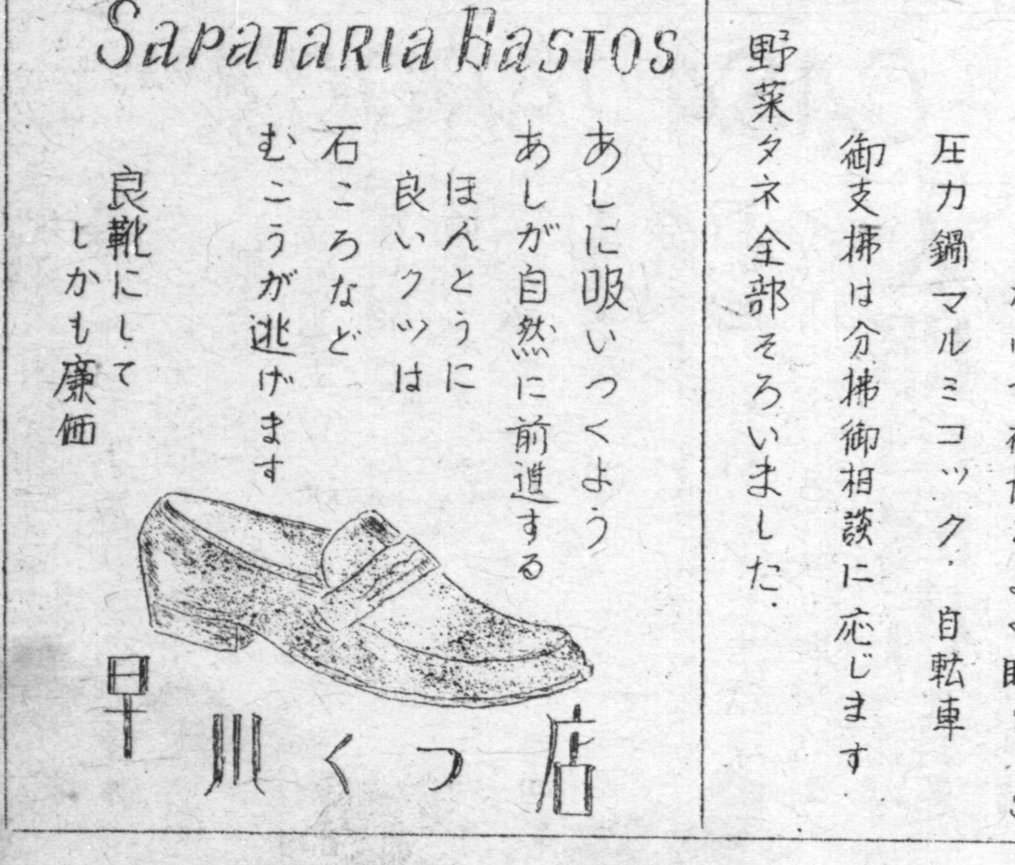 圧力鍋マルミコック．自転車
御支拂は分拂御相談に応じます
野菜タネ全部そろいました．
Sapataria Bastos
あしに吸いつくよう
あしが自然に前進する
ほんとうに
良いクツは
石ころなど
むこうが逃げます
良靴にして
しかも廉価
早川くつ店